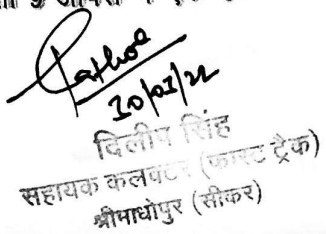 10/01/22
दिलीप सिंह
सहायक कलक्टर (फास्ट ट्रैक)
श्रीमाधोपुर (सीकर)